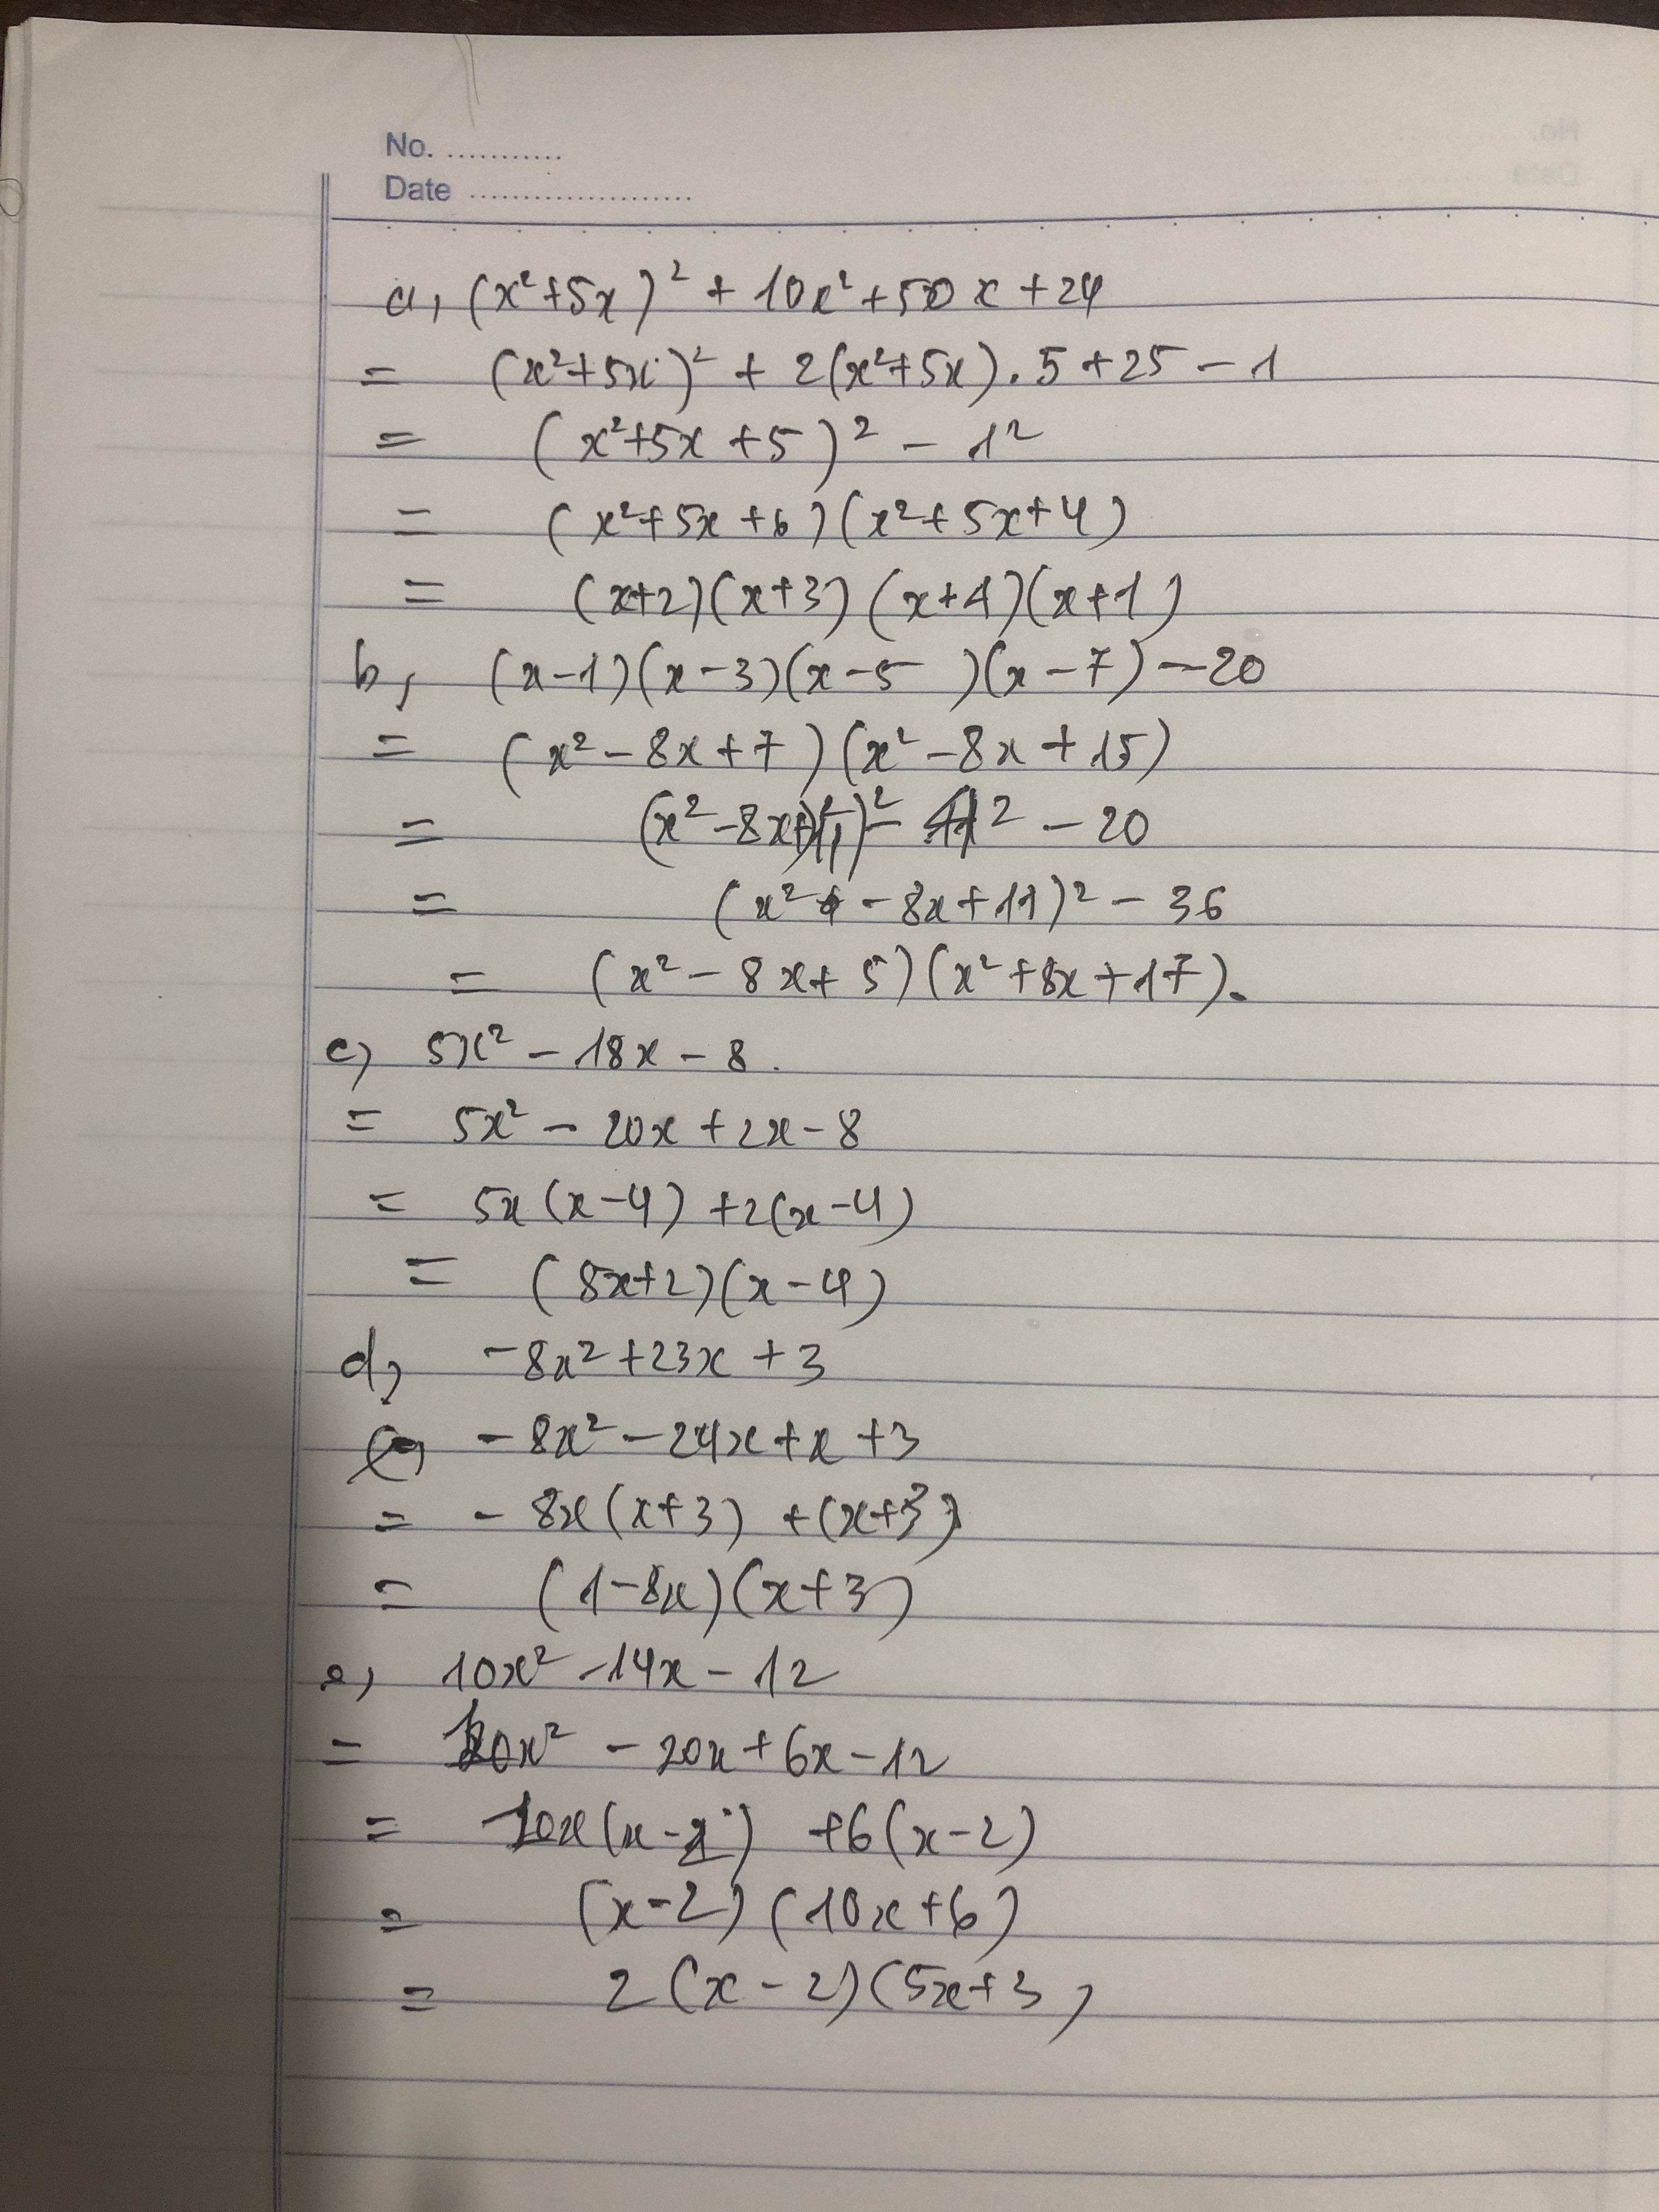 No. ............
Date ........................
a, (x²+5x)² + 10x²+50x+24
= (x²+5x)² + 2(x²+5x).5+25-1
= (x²+5x+5)² - 1²
= (x²+5x+6)(x²+5x+4)
= (x+2)(x+3)(x+4)(x+1)
b, (x-1)(x-3)(x-5)(x-7)-20
= (x²-8x+7)(x²-8x+15)
= (x²-8x+11)² - 4² - 20
= (x² - 8x+11)² - 36
= (x²-8x+5)(x²+8x+17).
c, 5x² - 18x - 8.
= 5x² - 20x+2x-8
= 5x(x-4) +2(x-4)
= (8x+2)(x-4)
d, -8x²+23x+3
-8x²-24x+x+3
= -8x(x+3) +(x+3)
= (1-8x)(x+3)
e, 10x²-14x-12
= 10x² - 20x+6x-12
= 10x(x-2) +6(x-2)
= (x-2)(10x+6)
= 2(x-2)(5x+3)